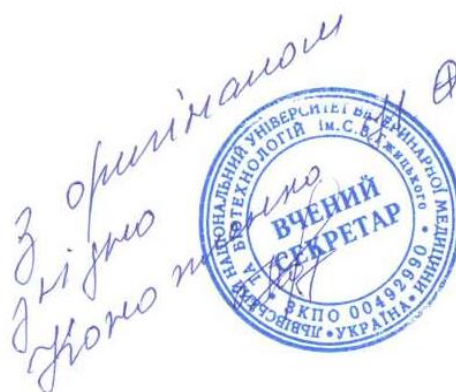 З оригіналом
згідно
ЛЬВІВСЬКИЙ НАЦІОНАЛЬНИЙ УНІВЕРСИТЕТ ВЕТЕРИНАРНОЇ МЕДИЦИНИ
ТА БІОТЕХНОЛОГІЙ ім.С.З.Ґжицького
ВЧЕНИЙ
СЕКРЕТАР
ЗКПО 00492990
• УКРАЇНА •